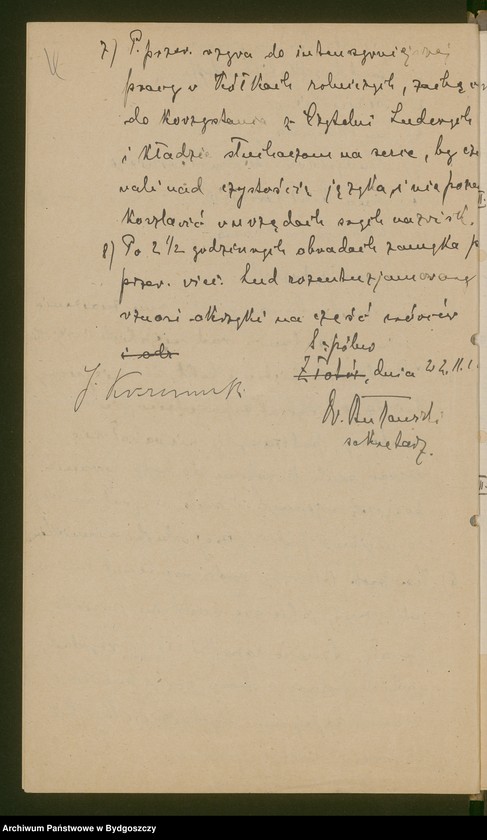 7) P. przew. wzywa do intensywniejszej
pracy w Kółkach rolniczych, zachęca
do korzystania z Czytelni Ludowych
i kładzie słuchaczom na serce, by czu
wali nad czystością języka i nie pozwa
koszlawić w urzędach swych nazwisk.
8) Po 2 1/2 godzinnych obradach zamyka p.
przew. wiec. Lud rozentuzjazmowany
wznosi okrzyki na cześć
Sępólno
Złotów, dnia 22.11.1
sekretarz.
Archiwum Państwowe w Bydgoszczy